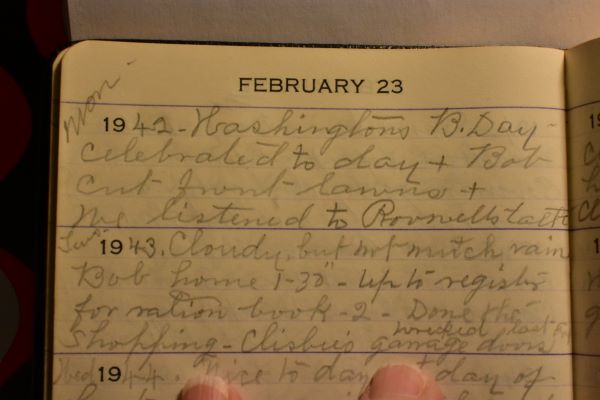 FEBRUARY 23
Mon.
1942 - Washingtons B. Day -
celebrated to day + Bob
cut front lawns +
We listened to Roosvelts talk
Tues
1943. Cloudy, but not much rain
Bob home 1-30" - Up to register
for ration book - 2 - Done the
wrecked last
Shopping - Clisbie's garage doors
Wed
1944. Nice to day + day of